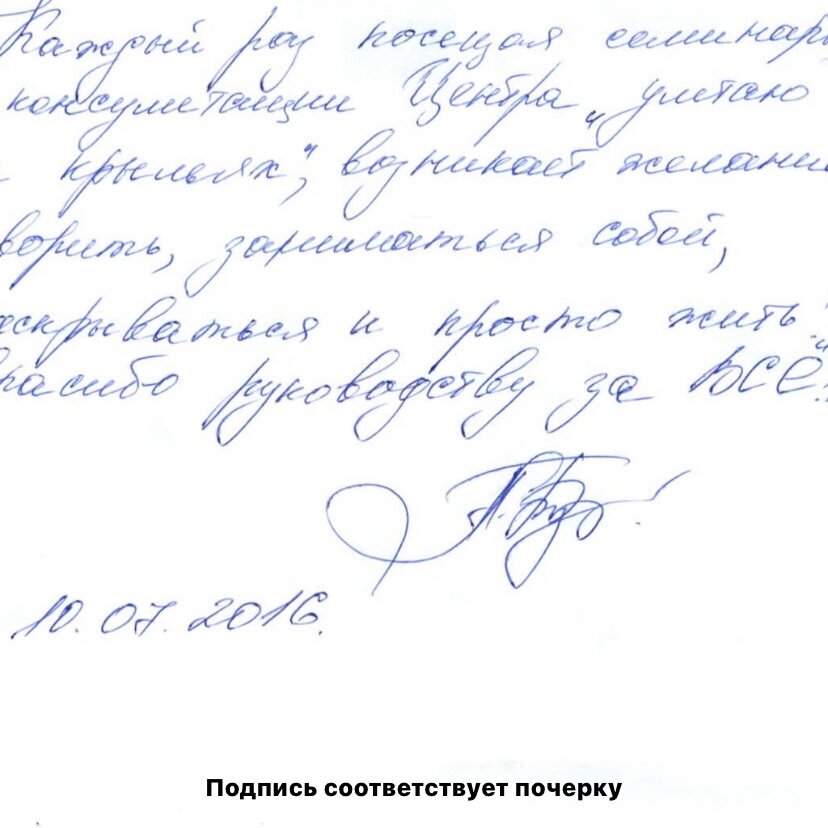 Каждый раз посещая семинар
консультации Центра „улетаю
крыльях", возникает желани
ворить, заниматься собой,
аскрываться и просто жить"
пасибо руководству за ВСЁ!
10.07.2016.
Подпись соответствует почерку